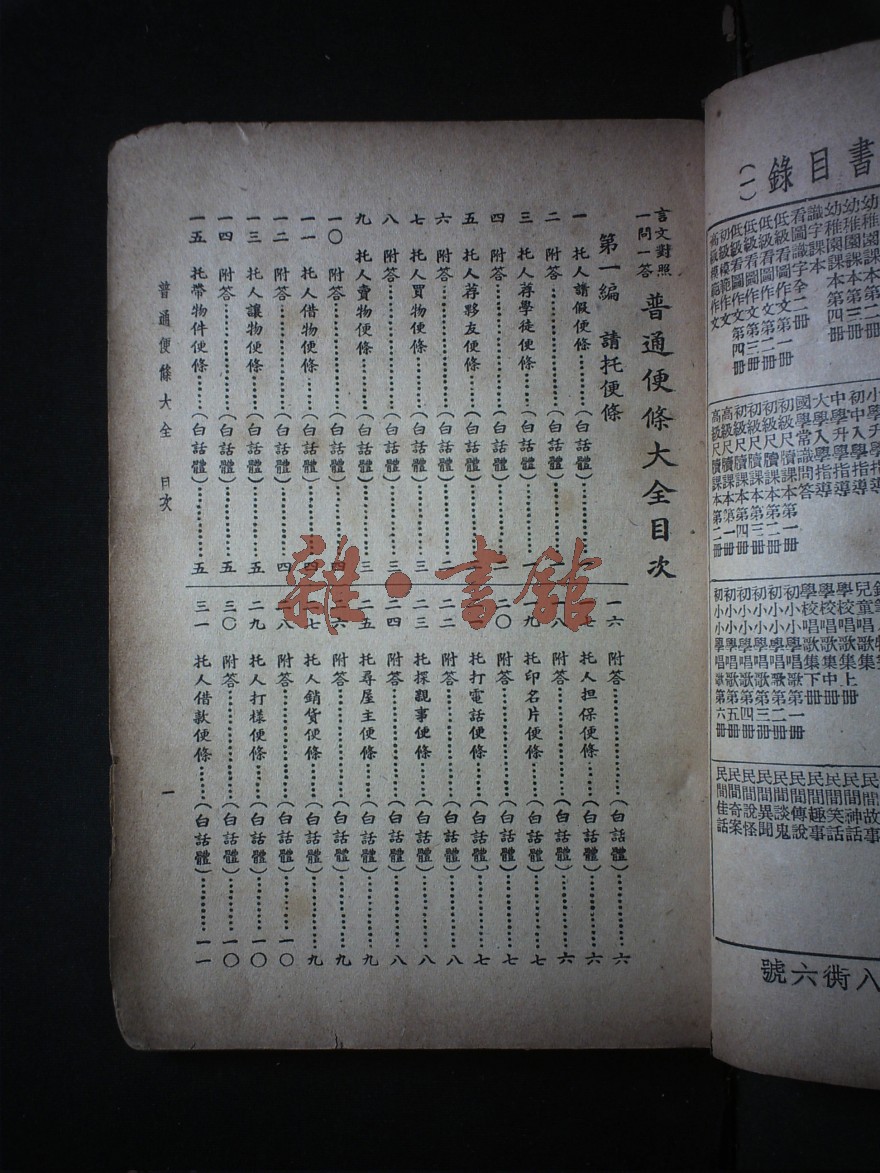 書目錄(一)
幼稚園課本第三冊
幼稚園課本第四冊
識字課本
看圖識字全二冊
低級看圖作文第一冊
低級看圖作文第二冊
低級看圖作文第三冊
低級看圖作文第四冊
初級模範作文
高級模範作文
小學升學指導
初中入學指導
中學升學指導
大學入學指導
國學常識問答
初級尺牘課本第一冊
初級尺牘課本第二冊
初級尺牘課本第三冊
初級尺牘課本第四冊
高級尺牘課本第一冊
高級尺牘課本第二冊
學校唱歌集上冊
學校唱歌集中冊
學校唱歌集下冊
初小學唱歌第一冊
初小學唱歌第二冊
初小學唱歌第三冊
初小學唱歌第四冊
初小學唱歌第五冊
初小學唱歌第六冊
民間故事
民間神話
民間笑話
民間趣事
民間傳說
民間談鬼
民間異聞
民間說怪
民間奇案
民間佳話
八衖六號
言文對照
一問一答
普通便條大全目次
第一編 請托便條
一 托人請假便條……(白話體)……一
二 附答……(白話體)……一
三 托人荐學徒便條……(白話體)……一
四 附答……(白話體)……二
五 托人荐夥友便條……(白話體)……二
六 附答……(白話體)……二
七 托人買物便條……(白話體)……三
八 附答……(白話體)……三
九 托人賣物便條……(白話體)……三
一〇 附答……(白話體)……四
一一 托人借物便條……(白話體)……四
一二 附答……(白話體)……四
一三 托人讓物便條……(白話體)……五
一四 附答……(白話體)……五
一五 托帶物件便條……(白話體)……五
一六 附答……(白話體)……六
一七 托人担保便條……(白話體)……六
一八 附答……(白話體)……六
一九 托印名片便條……(白話體)……七
二〇 附答……(白話體)……七
二一 托打電話便條……(白話體)……七
二二 附答……(白話體)……八
二三 托探親事便條……(白話體)……八
二四 附答……(白話體)……八
二五 托尋屋主便條……(白話體)……九
二六 附答……(白話體)……九
二七 托人銷貨便條……(白話體)……九
二八 附答……(白話體)……一〇
二九 托人打樣便條……(白話體)……一〇
三〇 附答……(白話體)……一〇
三一 托人借款便條……(白話體)……一一
普通便條大全 目次 一
雜·書館